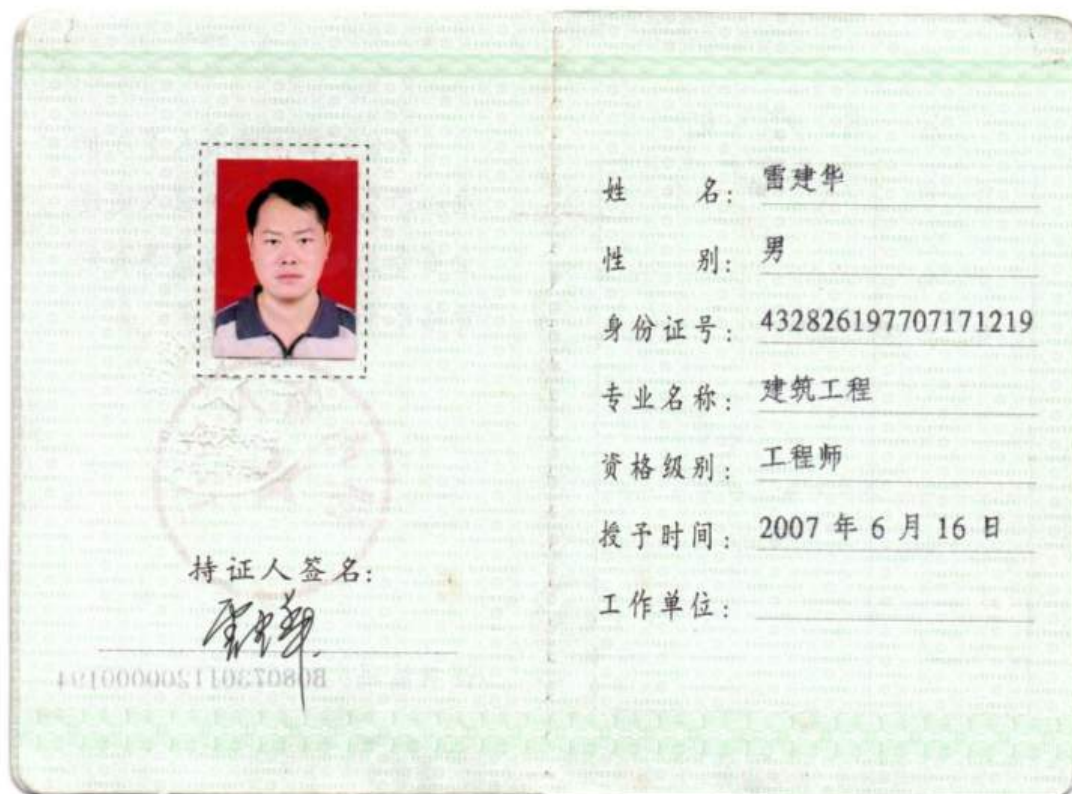 持证人签名:
姓 名: 雷建华
性 别: 男
身份证号: 432826197707171219
专业名称: 建筑工程
资格级别: 工程师
授予时间: 2007 年 6 月 16 日
工作单位: